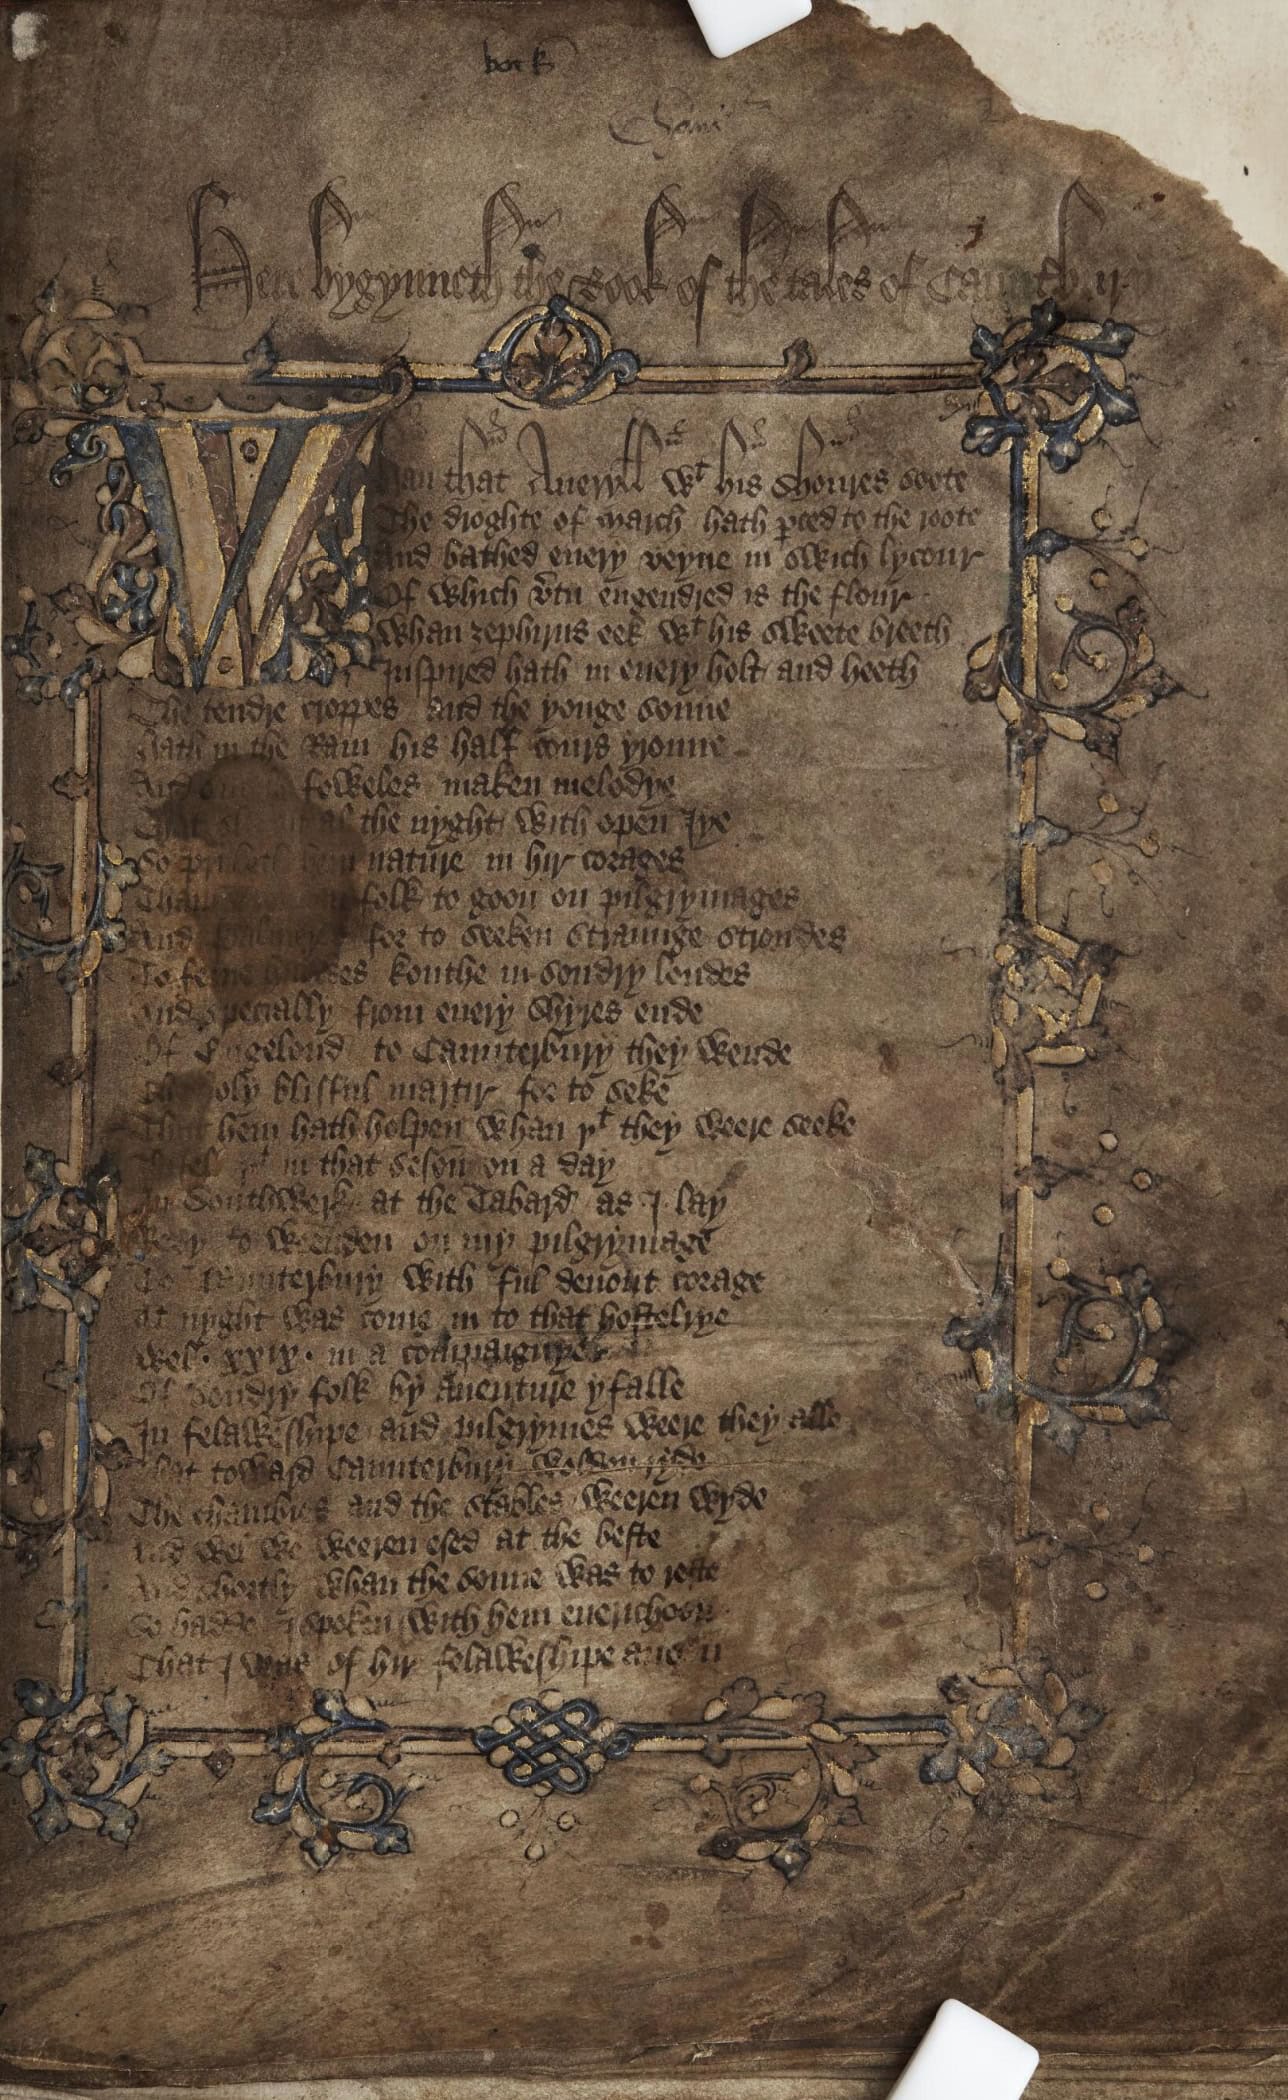 Here bygynneth the Book of the tales of Caunterbury
Whan that Aueryll wt his shoures soote
The droghte of march hath pced to the roote
And bathed euery veyne in swich lycour
Of which vtu engendred is the flour
Whan zephirus eek wt his sweete breeth
Inspired hath in euery holt and heeth
The tendre croppes and the yonge sonne
Hath in the Ram his half cours yronne
And foweles maken melodye
That al the nyght with open Iye
So priketh hem nature in hir corages
folk to goon on pilgrymages
And Palmeres for to seeken straunge strondes
To ferne halwes kouthe in sondry londes
And specially from euery shyres ende
Of Engelond to Caunterbury they wende
The holy blisful martir for to seke
That hem hath holpen whan yt they weere seeke
in that seson on a day
In Southwerk at the Tabard as I lay
Redy to weenden on my pilgrymage
To Caunterbury with ful deuout corage
At nyght was come in to that hostelrye
Wel xxix in a compaignye
Of sondry folk by auenture yfalle
In felaweshipe and pilgrymes weere they alle
That toward Caunterbury wolden ryde
The chambres and the stables weeren wyde
And wel we weeren esed at the beste
And shortly whan the sonne was to reste
So hadde I spoken with hem euerichon
That I was of hir felaweshipe anon